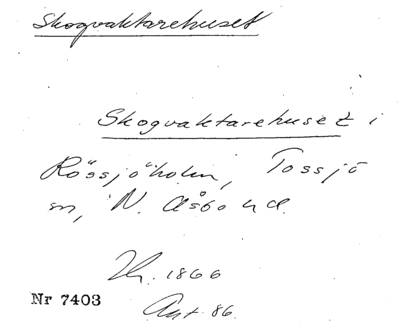 Skogvaktarehuset
Skogvaktarehuset i
Röösjöholm, Tossjö
sn, N. Åsbo hd.
Th. 1866
Ant. 86.
Nr 7403